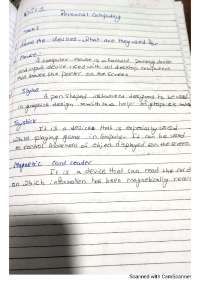 Unit 2
Personal Computing
Task 1
Name the devices. What are they used for
Mouse:
A computer mouse is a handheld pointing device
and input device used with all desktop equipment
that moves the pointer on the screen.
Stylus
A pen shaped instrument designed to be used
in graphics design
Joystick
It is a device that is especially used
while playing game in computer. It can be used
to control movement of object displayed on the screen
Magnetic card reader
It is a device that can read the card
on which information has been magnetically
Scanned with CamScanner